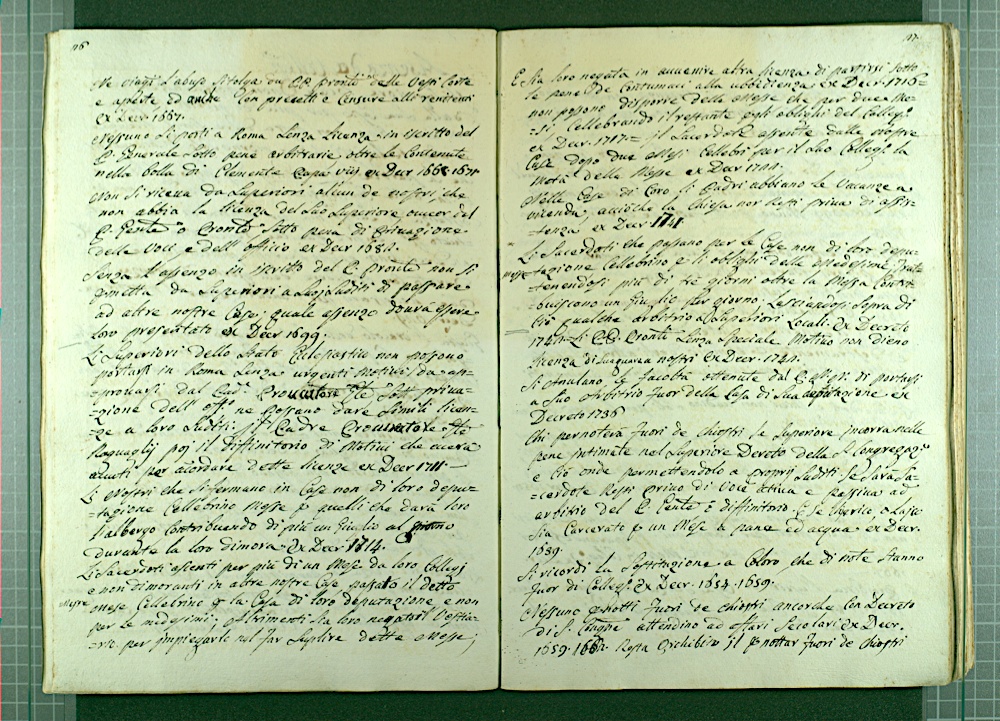 116
Ne viagi l'abuso si tolga da PP. Pronti nelle Vesti corte
e aperte ed anche con precetti e Censure alli renitenti
ex Decr. 1667.
Nessuno si porti a Roma senza licenza in iscritto del
P. Generale sotto pene arbitrarie oltre le contenute
nella bolla di Clemente Papa ex Decr 1668. 1671.
Non si riceva da Superiori alcun de nostri, che
non abbia la licenza del suo Superiore, ovvero del
P. o Pronte sotto pena di Privazione
della Voce e dell' officio ex Decr 1682.
Senza l'assenzo in iscritto del P. Pronte non si
pmetta da Superiori a suoi suditi di passare
ad altre nostre Case; quale assenzo dovrà essere
loro presentato ex Decr 1699.
Li Superiori dello Stato Eclesiastico non possono
portarsi in Roma senza urgenti motivi da ap-
provarsi dal Pad. Procuratore Gle sotto priva-
-zione dell' off. ne possano dare simili licen-
-ze a loro suditi: il Padre Procuratore Gle
Raguaglij poi il Diffinitorio di motivi che averà
avuti per accordare dette licenze ex Decr 1711.
Li Nostri che si fermano in Case non di loro depu-
-tazione Cellebrino Messe p quelli che darà loro
l'albergo contribuendo di più un Giulio al giorno
durante la loro dimora. Ex Decr. 1714.
Li Sacerdoti assenti per più di un Mese da loro Collegj
e non dimoranti in altre nostre Case passato il detto
Mese Cellebrino p la Casa di loro deputazione e non
per se medesimi; altrimenti sia loro negato il Vestia-
-rio per impiegarlo nel far suplire dette Messe;
117
E sia loro negata in avvenire altra licenza di partirsi sotto
le pene de Contumaci alla ubbedienza ex Decr. 1716=
non possono disporre delle Messe che per due Me-
-si Cellebrando il restante p gli oblighi del Colleg.
ex Decr. 1717= il Sacerdote assente dalle nostre
Case dopo due Mesi Cellebri per il suo Colleg. la
metà delle Messe ex Decr 1741.
Nelle Case di Coro li Padri abbiano le Vacanze a
vicenda, acciòche la Chiesa non resti priva di assis-
-tenza ex Decr 1741
Li Sacerdoti che passano per le Case non di loro depu-
-tazione Cellebrino p li oblighi delle Medesime, tratte-
nendosi più di tre giorni oltre la Messa contri-
-buiscono un Giulio per giorno; lasciandosi sopra di
ciò qualche arbitrio a Superiori locali. Ex Decreto
1741 = li PP. Pronti senza speciale Motivo non dieno
licenza a nostri ex Decr. 1741.
Si anulano le facoltà ottenute dal di portarsi
a suo arbitrio fuori della Casa di sua deputazione ex
Decreto 1736
Chi pernoterà fuori de chiostri se Superiore incorra nelle
pene intimate nel Superiore Decreto della S. Congregaz.
e ciò onde permettendolo a proprj suditi se sarà Sa-
-cerdote resti privo di Voce attiva e passiva ad
arbitrio del P. e Diffinitorio: Se Cherico, o laico
sia Carcerato p un Mese a pane ed acqua ex Decr.
1659.
Si ricordi la a coloro che di note stanno
fuor di Collegj Ex Decr. 1654. 1659.
Nessuno pnotti fuori de chiostri ancorche con Decreto
di S. Congne attendino ad affari Secolari ex Decr.
1659. 1662. Resta prohibito il pnottar fuori de Chiostri